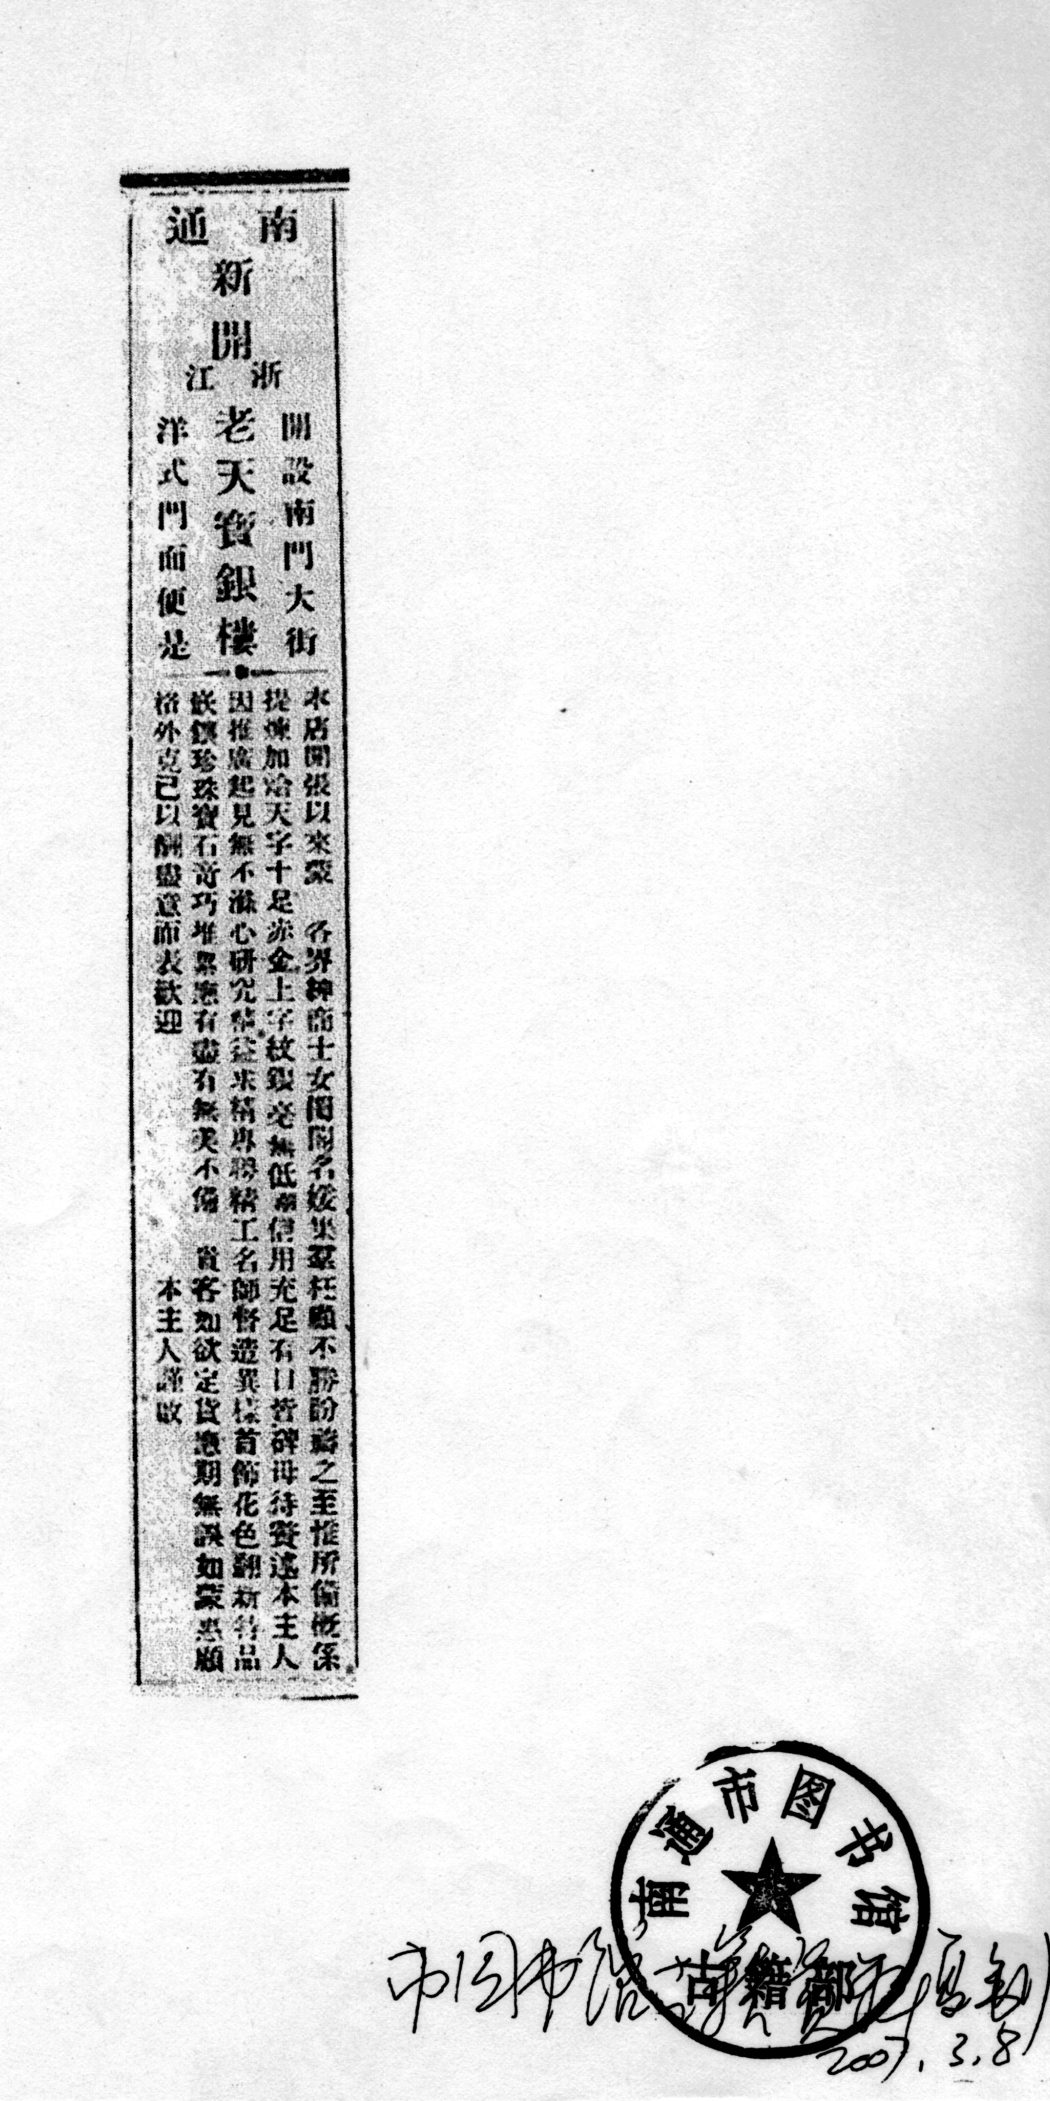 南通
新開
浙江
老天寶銀樓
開設南門大街
洋式門面便是
本店開張以來蒙　各界紳商士女閨閣名媛果羣枉顧不勝盼禱之至惟所備概係
提煉加哈天字十足赤金上字紋銀毫無低潮信用充足有口皆碑毋待贅述本主人
因推廣起見無不滌心研究精益求精專聘精工名師督造異樣首飾花色翻新特品
嵌鑲珍珠寶石奇巧堆纍應有盡有無美不備　貴客如欲定貨應期無誤如蒙惠顧
格外克已以酬盛意而表歡迎
本主人謹啟
南通市图书馆
古籍部
市图书馆 复制
2007.3.8